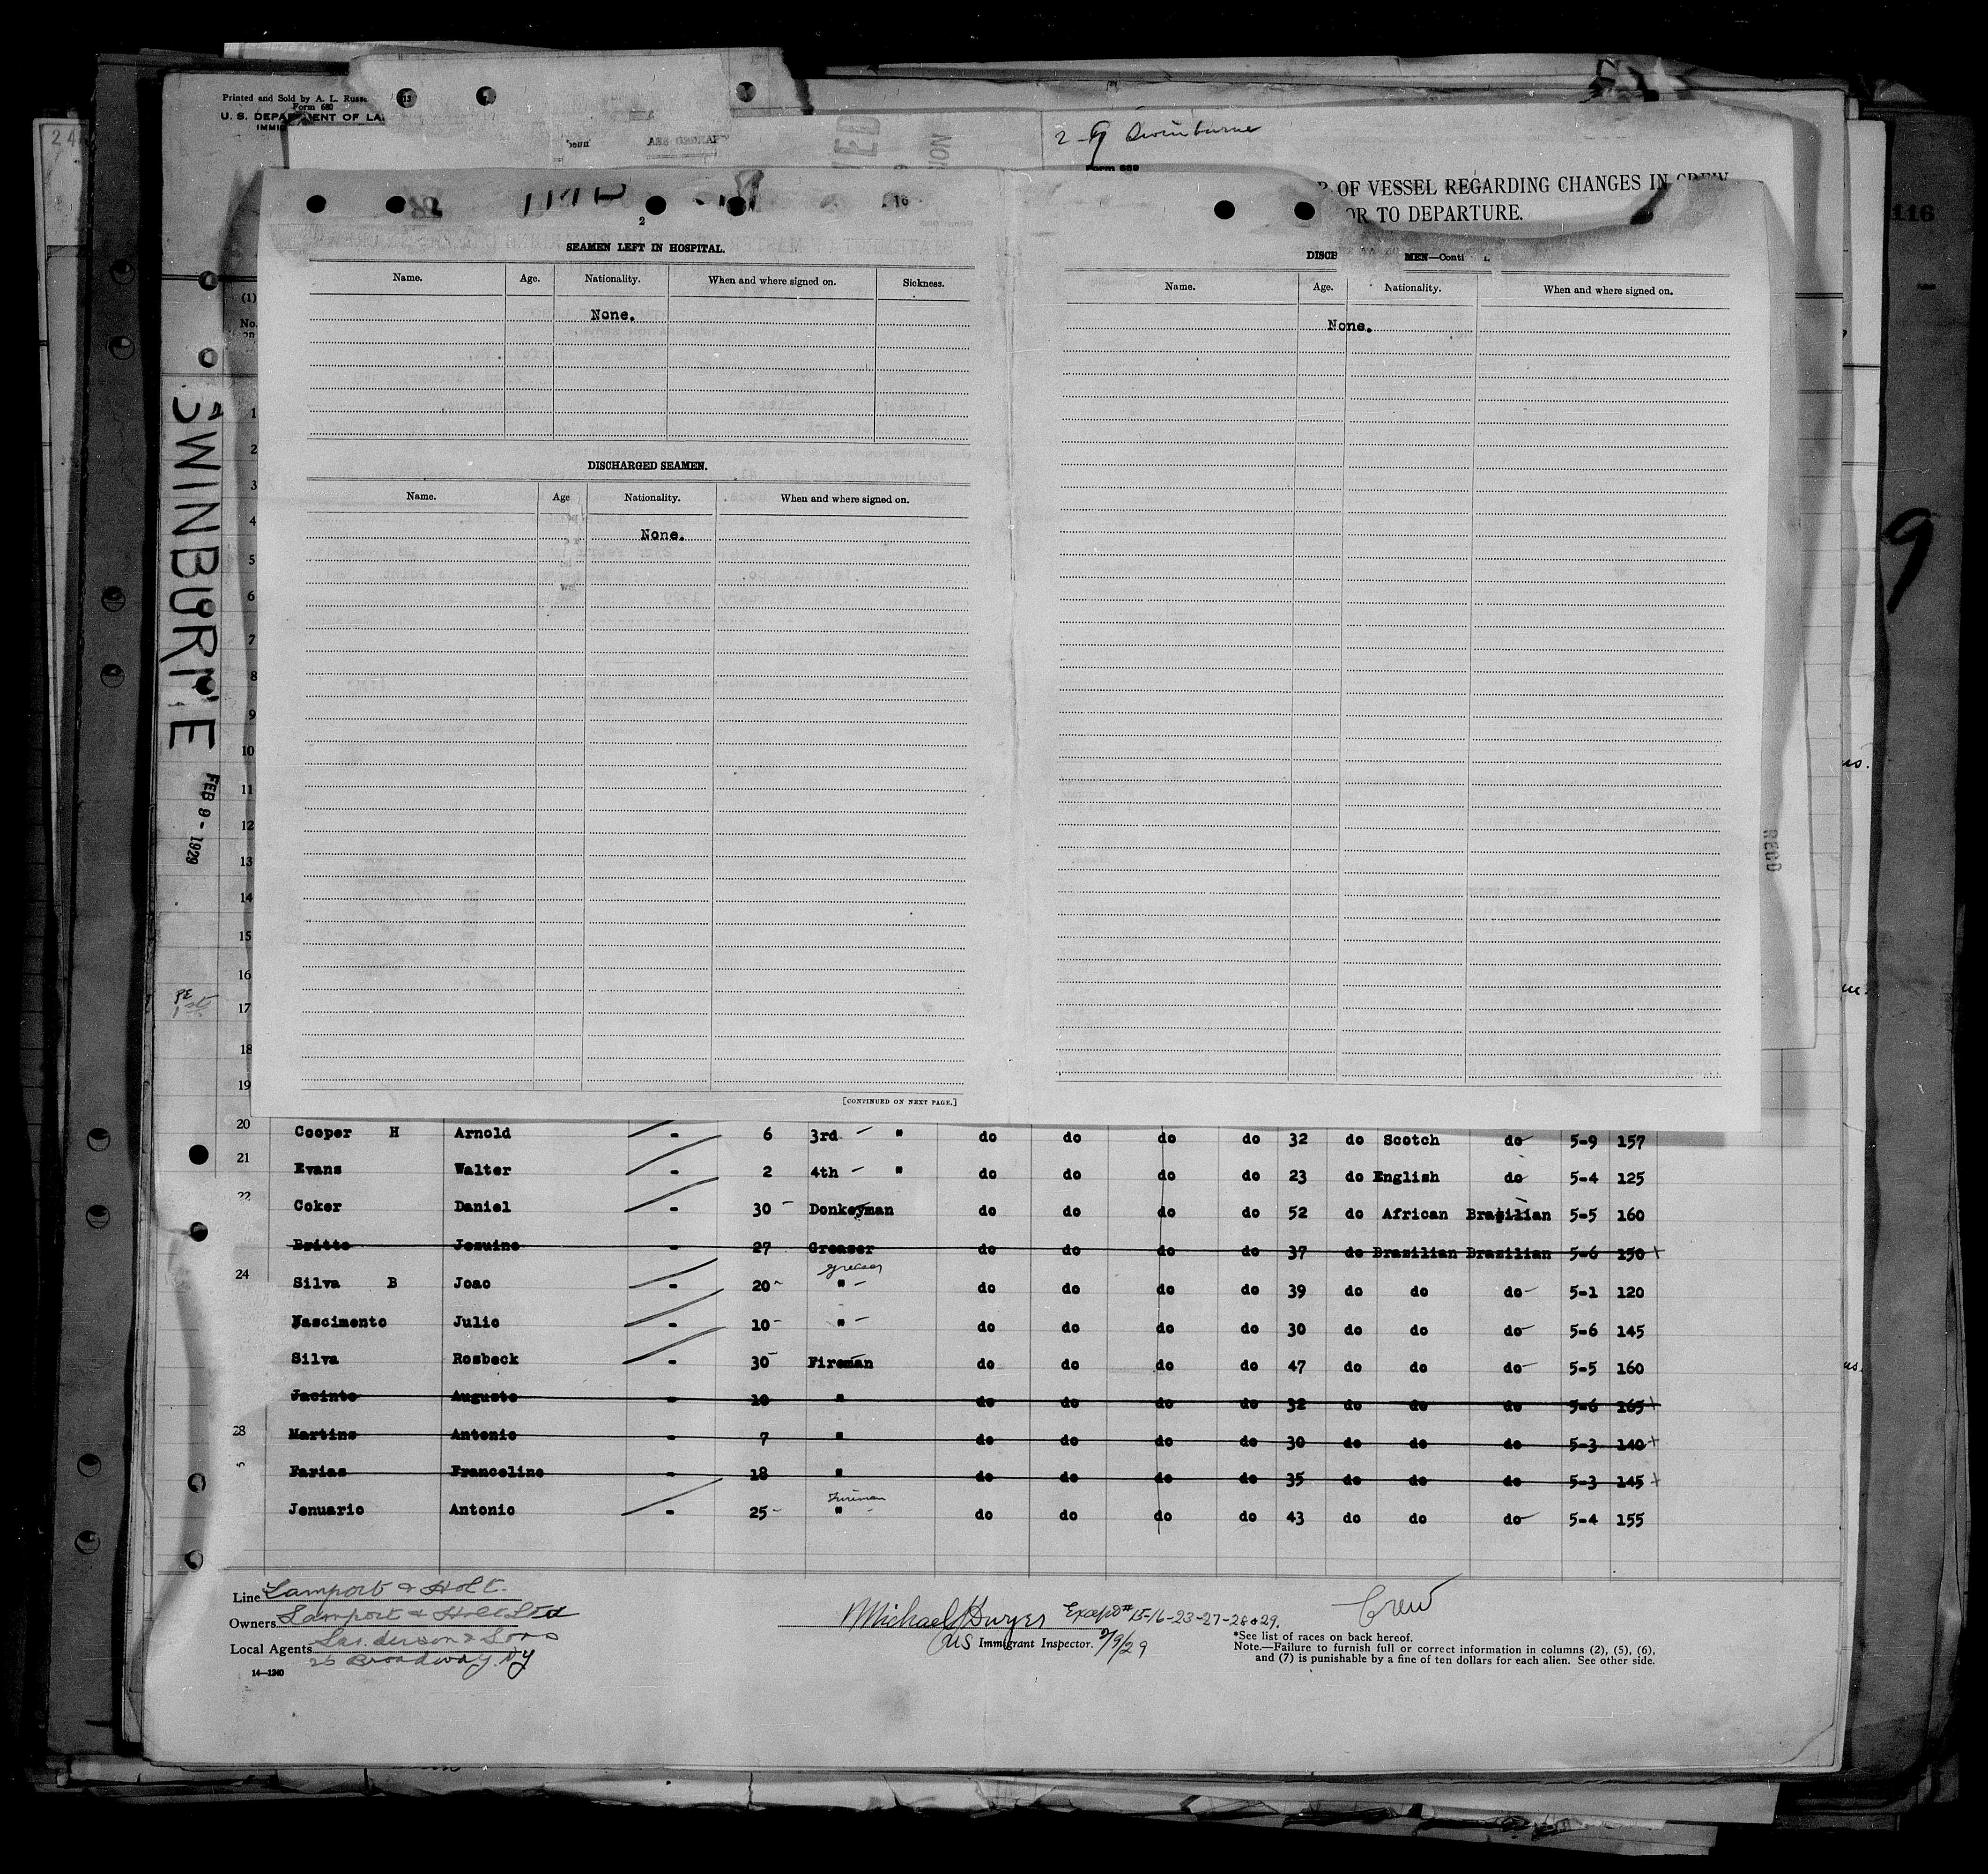 24
Printed and Sold by A. L. Russe
Form 680
U. S. DEPARTMENT OF LA
IMMIG
13
2-9 Swinburne
Form 689
R OF VESSEL REGARDING CHANGES IN CREW
OR TO DEPARTURE.
116
9
SWINBURNE
FEB 9 - 1929
RECD
(1)
No.
on
16
2
SEAMEN LEFT IN HOSPITAL.
Name. Age. Nationality. When and where signed on. Sickness.
None.
DISCHARGED SEAMEN.
Name. Age Nationality. When and where signed on.
None.
[CONTINUED ON NEXT PAGE.]
DISCH MEN—Conti
Name. Age. Nationality. When and where signed on.
None.
1
2
3
4
5
6
7
8
9
10
11
12
13
14
15
16
17
18
19
20 Cooper H Arnold - 6 3rd " do do do do 32 do Scotch do 5-9 157
21 Evans Walter - 2 4th " do do do do 23 do English do 5-4 125
22 Coker Daniel - 30 Donkeyman do do do do 52 do African Brazilian 5-5 160
Britto Jesuino - 27 Greaser do do do do 37 do Brazilian Brazilian 5-6 150
Greaser
24 Silva B Joao - 20 " do do do do 39 do do do 5-1 120
Nascimento Julio - 10 " do do do do 30 do do do 5-6 145
Silva Rosbeck - 30 Fireman do do do do 47 do do do 5-5 160
Jacinto Augusto - 10 " do do do do 32 do do do 5-6 165
28 Martins Antonio - 7 " do do do do 30 do do do 5-3 140
Farias Francelino - 18 " do do do do 35 do do do 5-3 145
Fireman
Jenuario Antonio - 25 " do do do do 43 do do do 5-4 155
Line Lamport & Holt.
Owners Lamport & Holt Ltd
Local Agents Sanderson & Sons
26 Broadway. NY
14—1240
Michael Dwyer Except # 15-16-23-27-28&29.
US Immigrant Inspector. 2/9/29
Crew
*See list of races on back hereof.
Note.—Failure to furnish full or correct information in columns (2), (5), (6),
and (7) is punishable by a fine of ten dollars for each alien. See other side.